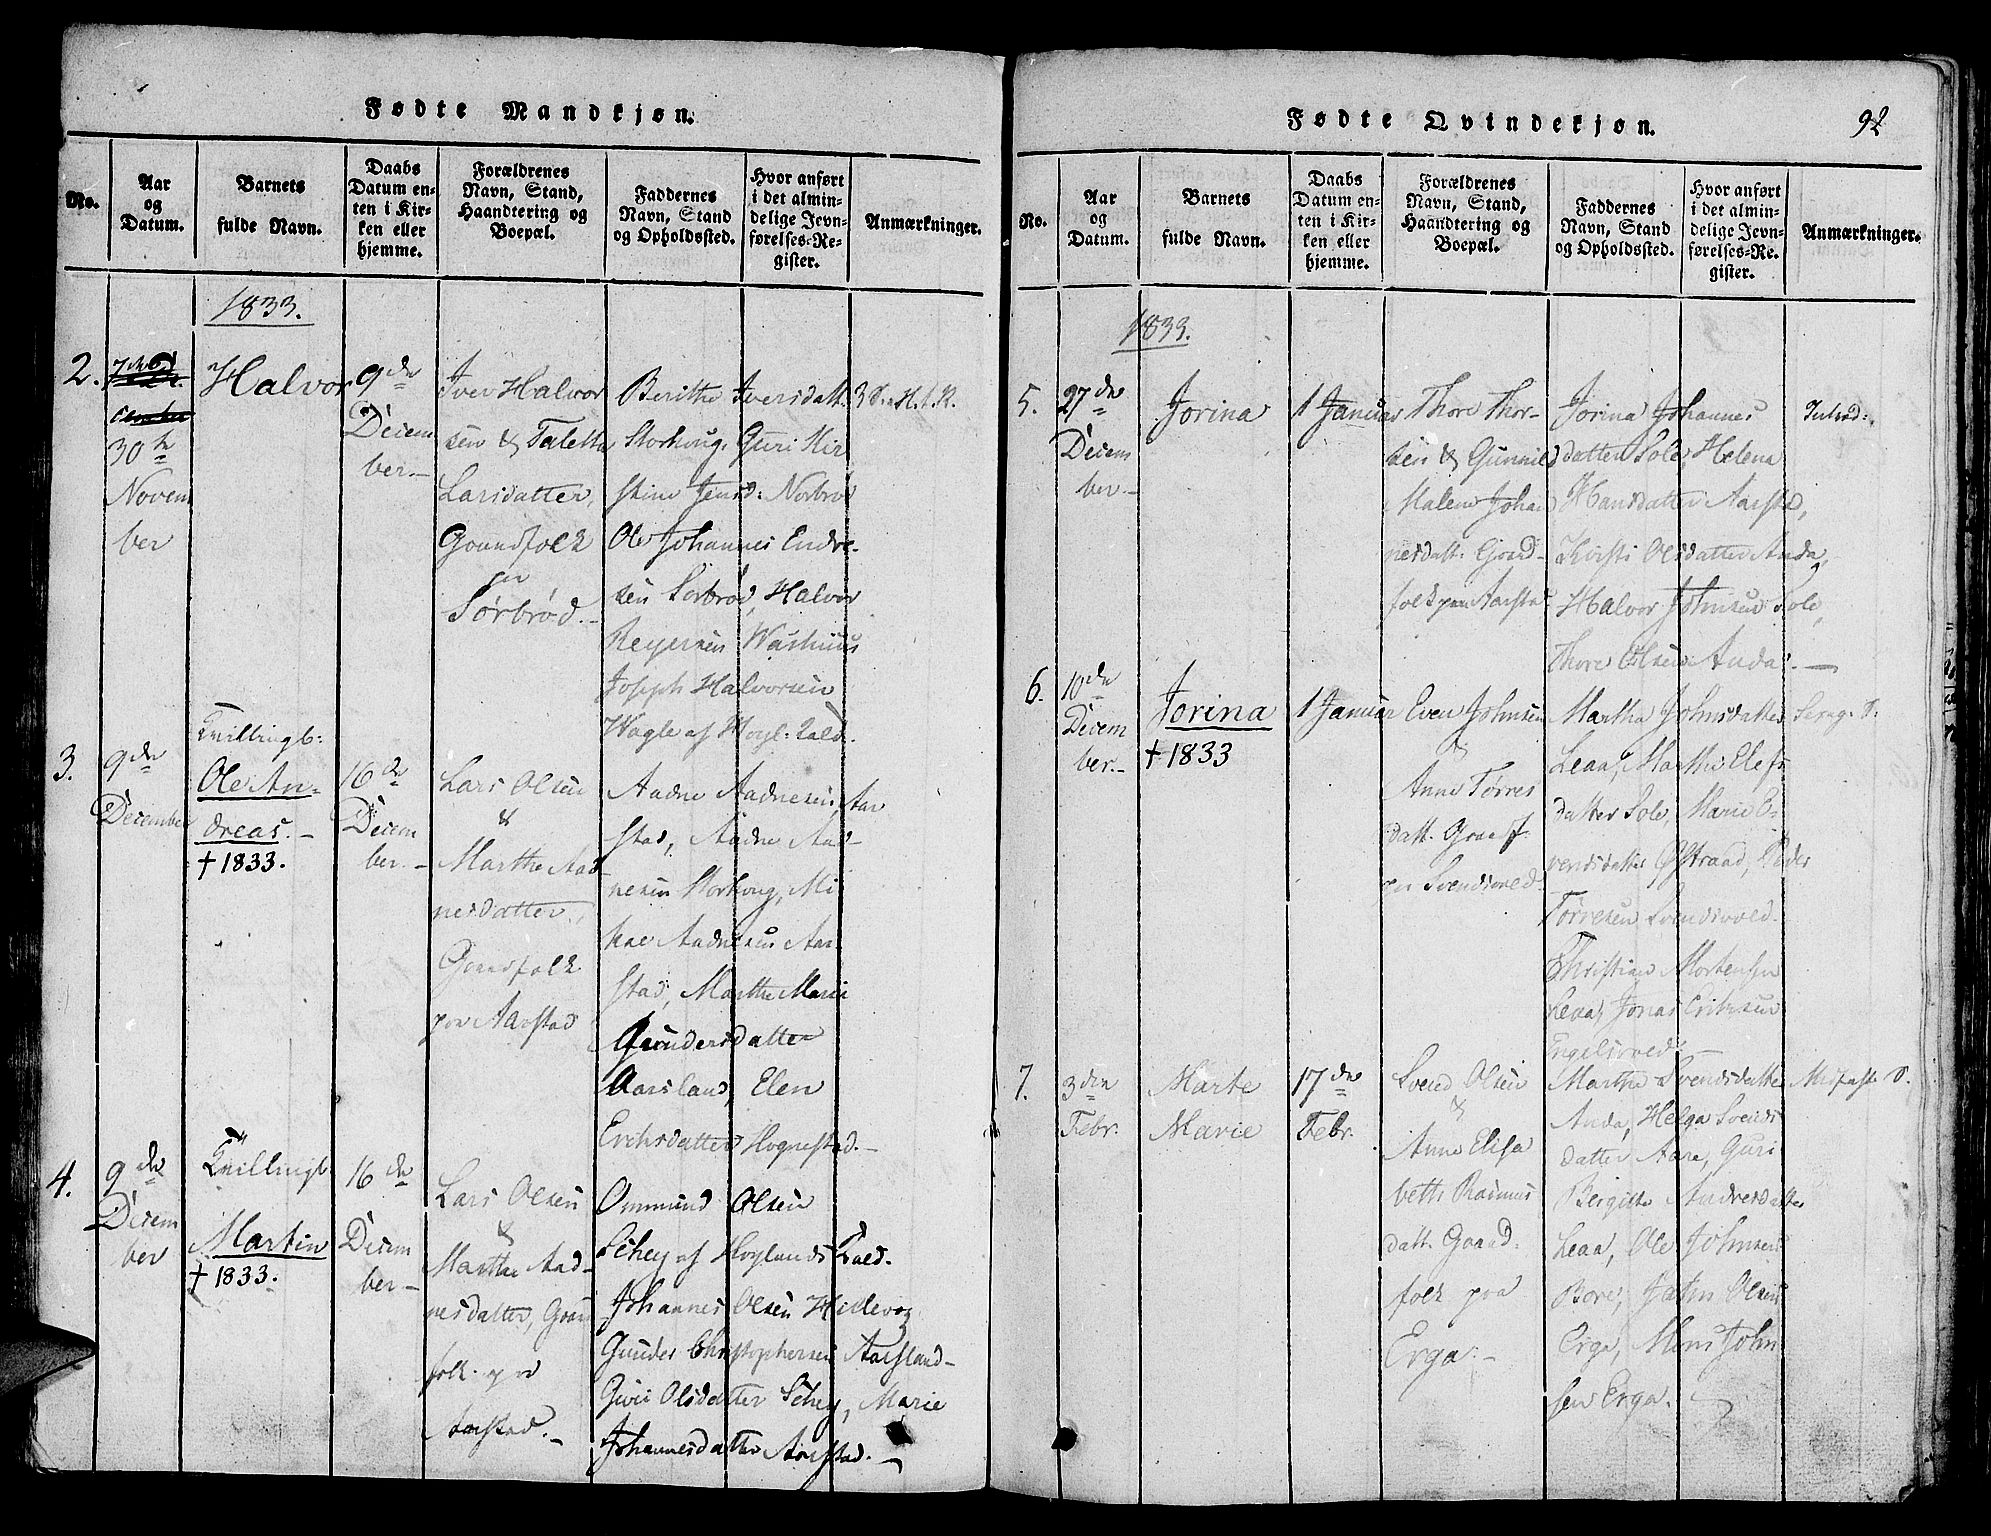 Fødte Mandkjøn.
No.
Aar og Datum.
Barnets fulde Navn.
Daabs Datum enten i Kirken eller hjemme.
Forældrenes Navn, Stand, Haandtering og Boepæl.
Faddernes Navn, Stand og Opholdssted.
Hvor anført i det almindelige Jevnførelses-Register.
Anmærkninger.
1833.
2.
30te
Novem
ber
Halvor
9de
Decem
ber.-
Iver Halvor
sen & Talette
Larsdatter,
Gaardfolk
Sørbrød.-
Berithe Iversdatt.
Storhoug, Guri Kir
stine Jensd: Norbrød
Ole Johannes Endre-
sen Sørbrød, Halvor
Reyersen Washuus
Joseph Halvorsen
Wagle af Høyl: Kald.
3 S. H. t. K.
3.
9de
December
Tvillingb:
Ole An-
dreas.-
† 1833.
16de
Decem
ber.-
Lars Olsen
&
Marthe Aad-
nesdatter,
Gaardfolk
paa Aarstad
Aadne Aadnesen Aar
stad, Aadne Aad-
nesen Storhoug, Mi
kal Aadnesen Aar
stad, Marthe Marie
Gundersdatter
Aarsland, Elen
Eriksdatter Hognestad.-
4.
9de
Decem
ber
Tvillingb
Martin
† 1833.
16de
Decem
ber-
Lars Olsen
&
Marthe Aad-
nesdatter, Gaard
folk paa
Aarstad.-
Ommund Olsen
Schey af Høylands Kald.
Johannes Olsen
Gunder Christophersen Aarsland-
Guri Olsdatter Schey, Marie
Johannesdatter Aarstad.-
Fødte Qvindekjøn.
92
No.
Aar og Datum.
Barnets fulde Navn.
Daabs Datum enten i Kirken eller hjemme.
Forældrenes Navn, Stand, Haandtering og Boepæl.
Faddernes Navn, Stand og Opholdssted.
Hvor anført i det almindelige Jevnførelses-Register.
Anmærkninger.
1833.
5.
27de
Decem
ber.-
Jorina
1 Januar
Thore Thor-
sen & Gunnild
Malene Johan
nesdatt: Gaard-
folk paa Aarstad
Jorina Johannes
datter Sole, Helena
Hansdatter Aarstad,
Kirsti Olsdatter Anda,
Halvor Johnsen Sole,
Thore Olsen Anda.-
Introd:
6.
10de
Decem
ber.-
Jorina
† 1833
1 Januar
Even Johnsen
&
Anne Tørres
datt. Gaardf.
paa Svendsvold
Martha Johnsdatter
Leaa, Marthe Elefs
datter Sole, Marie E-
vensdatter Østraad, Peder
Tørresen Svendsvold.
Christian Mortensen
Leaa, Jonas Eriksen
Engelsvold.-
Sexag. S.
7.
3die
Febr.
Marte
Marie
17de
Febr.
Svend Olsen
&
Anne Elisa
beth Rasmus
datt. Gaard-
folk paa
Erga.-
Martha Svendsdatter
Anda, Helga Svends
datter Aare, Guri
Birgitte Andresdatter
Leaa, Ole Johnsen
Bore, John Olsen
Erga, Mons John
sen Erga.
Midfaste S.